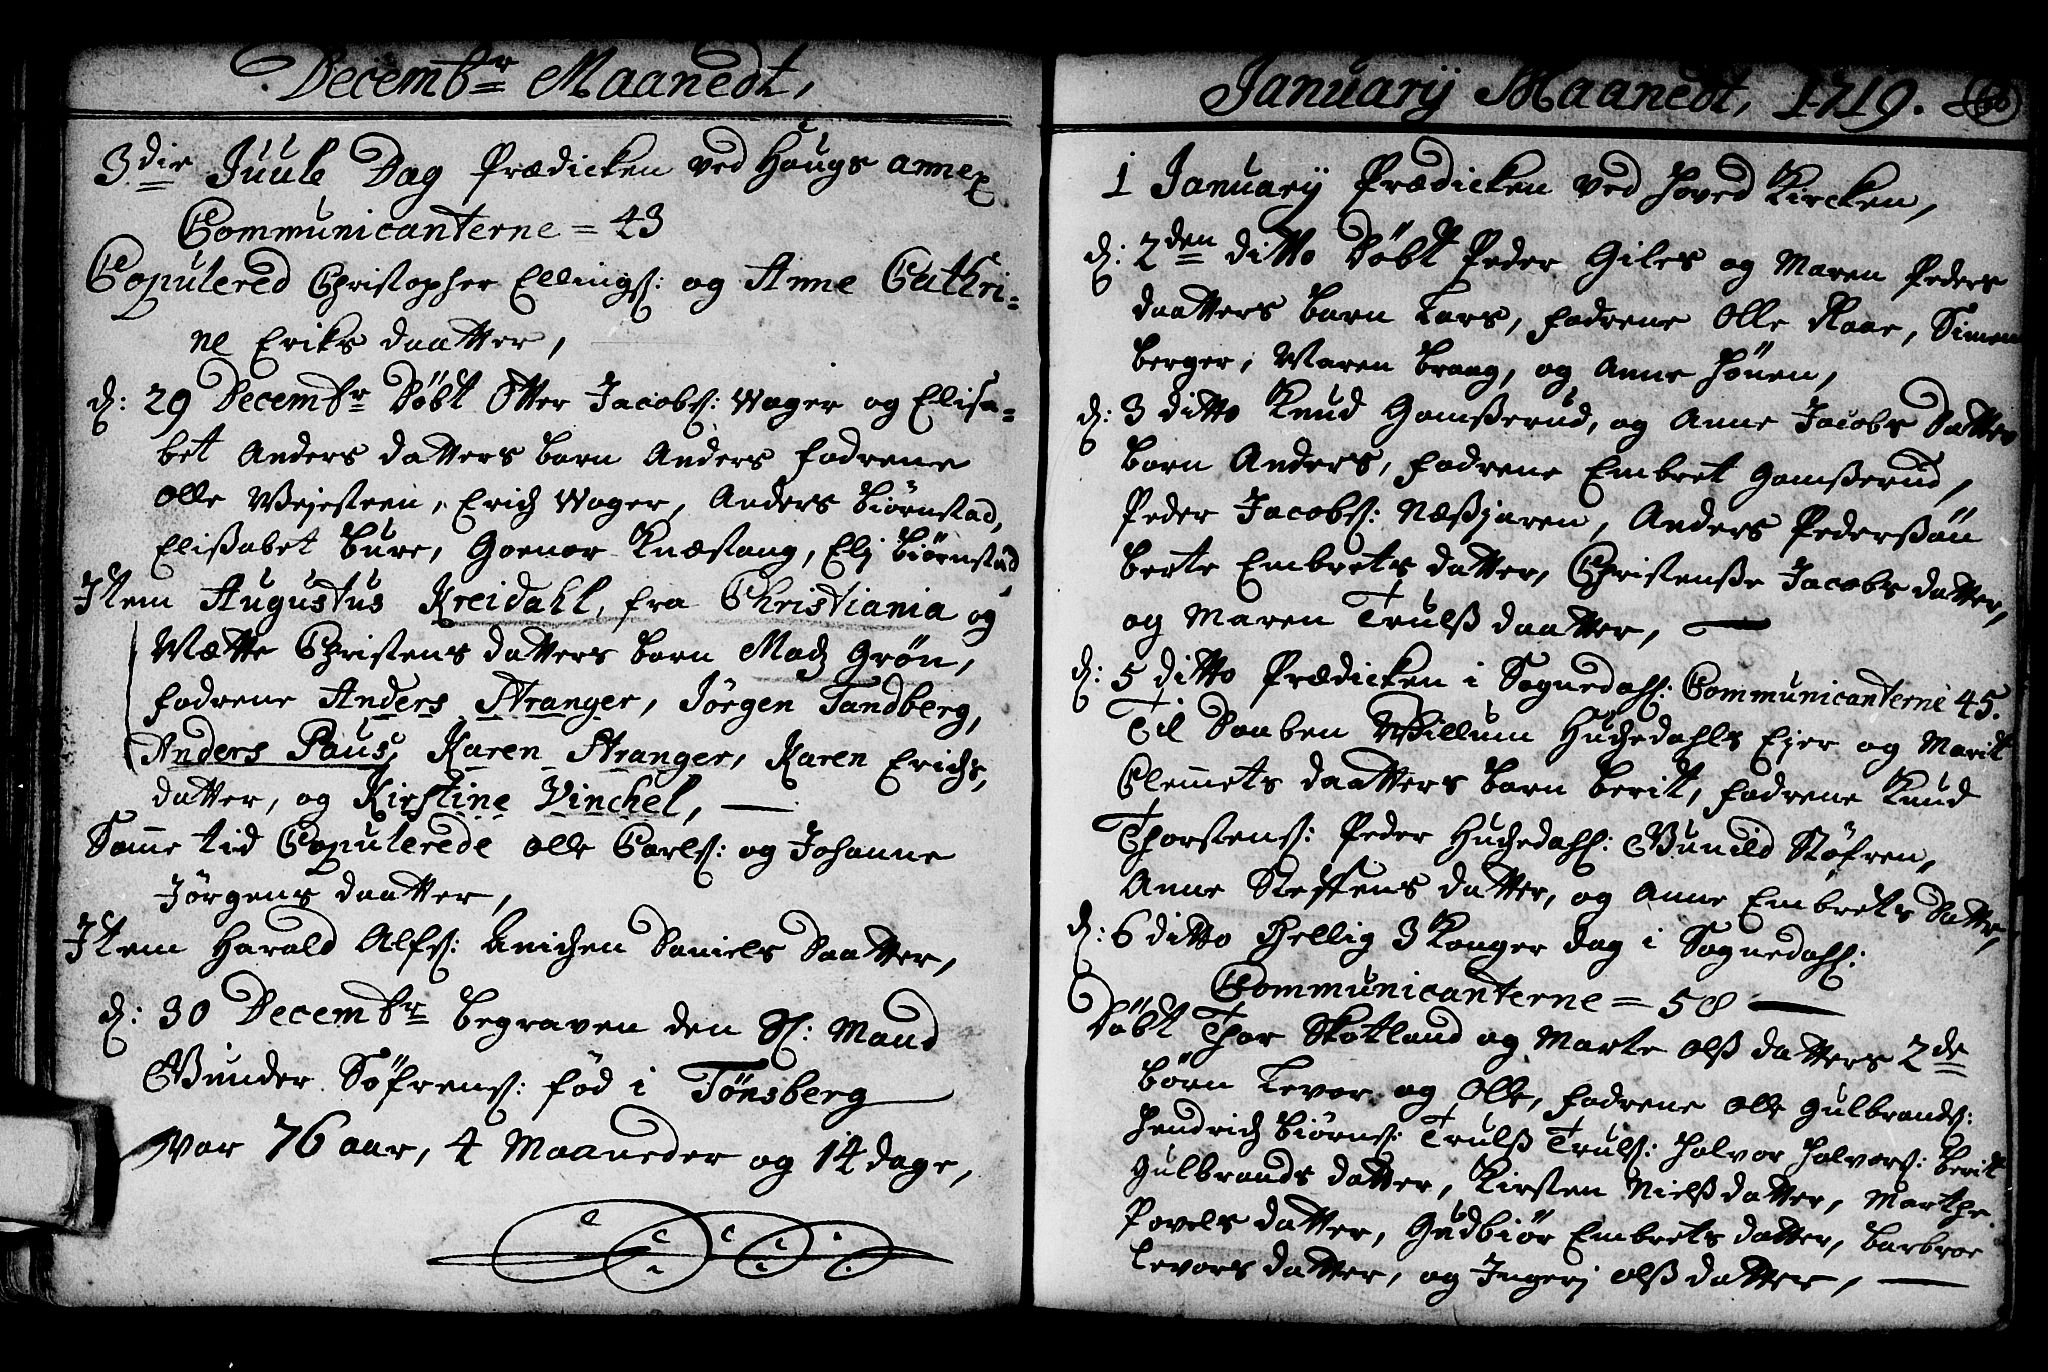 Decembr Maanedt,
3die Juule Dag Prædicken ved Haugs annex
Communicanterne = 43
Copulered Christopher Ellings: og Anne Cathri=
ne Eriks daatter,
d: 29 Decembr Döbt Otter Jacobs: Wager og Elisa=
bet Anders datters barn Anders fadrene
Olle Wejesteen, Erich Wager, Anders Biörnstad,
Elissabet Bure, Goenor Knæstang, Elj Biörnstad
Jtem Augustus Kreidahl, fra Christiania og
Mætte Christens datters barn Madz Grön,
fadrene Anders Stranger, Jörgen Tandberg,
Anders Paus, Karen Stranger, Karen Erichs,
datter, og Kirstine Vinchel,
Samme tid Copulerede Olle Carls: og Johanne
Jörgens daatter,
Jtem Harald Alfs: Anichen Daniels Daatter,
d: 30 Decembr begraven den Sl: Mand
Gunder Söfrens: föd i Tönsberg
var 76 aar, 4 Maaneder og 14 dage,
Januarij Maanedt, 1719.
1 Januarij Prædicken ved hoved Kircken,
d: 2den ditto Döbt Peder Giles og Maren Peders
daatters barn Lars, fadrene Olle Raae, Simen
berger, Maren Braag, og Anne Hönen,
d: 3 ditto Knud Gamsserud, og Anne Jacobs datters
barn Anders, fadrene Embret Gamsserud,
Peder Jacobs: Næssjaren, Anders Pederssön
berte Embrets datter, Christensse Jacobs datter,
og Maren Trulss daatter,
d: 5 ditto Prædicken i Sognedahl: Communicanterne 45.
Til Daaben Willum Huchedahls Ejer og Marit
Clemmets daatters barn berit, fadrene Knud
Thorstens: Peder Huchedahl: Gunild Stöfren,
Anne Steffens datter, og Anne Embrets datter,
d: 6 ditto Hellig 3 Konger dag i Sognedahl:
Communicanterne = 58
Döbt Thor Skotland og Marte olss datters 2de
börn Levor og Olle, fadrene Olle Gulbrands:
Hendrich Biörns: Trulss Truls: Halvor Halvors: berit
Gulbrands datter, Kirsten Nielss datter, Marthe
Povels datter, Gudbiör Embrets datter, barbroe
Levors datter, og Jngerj olss datter,